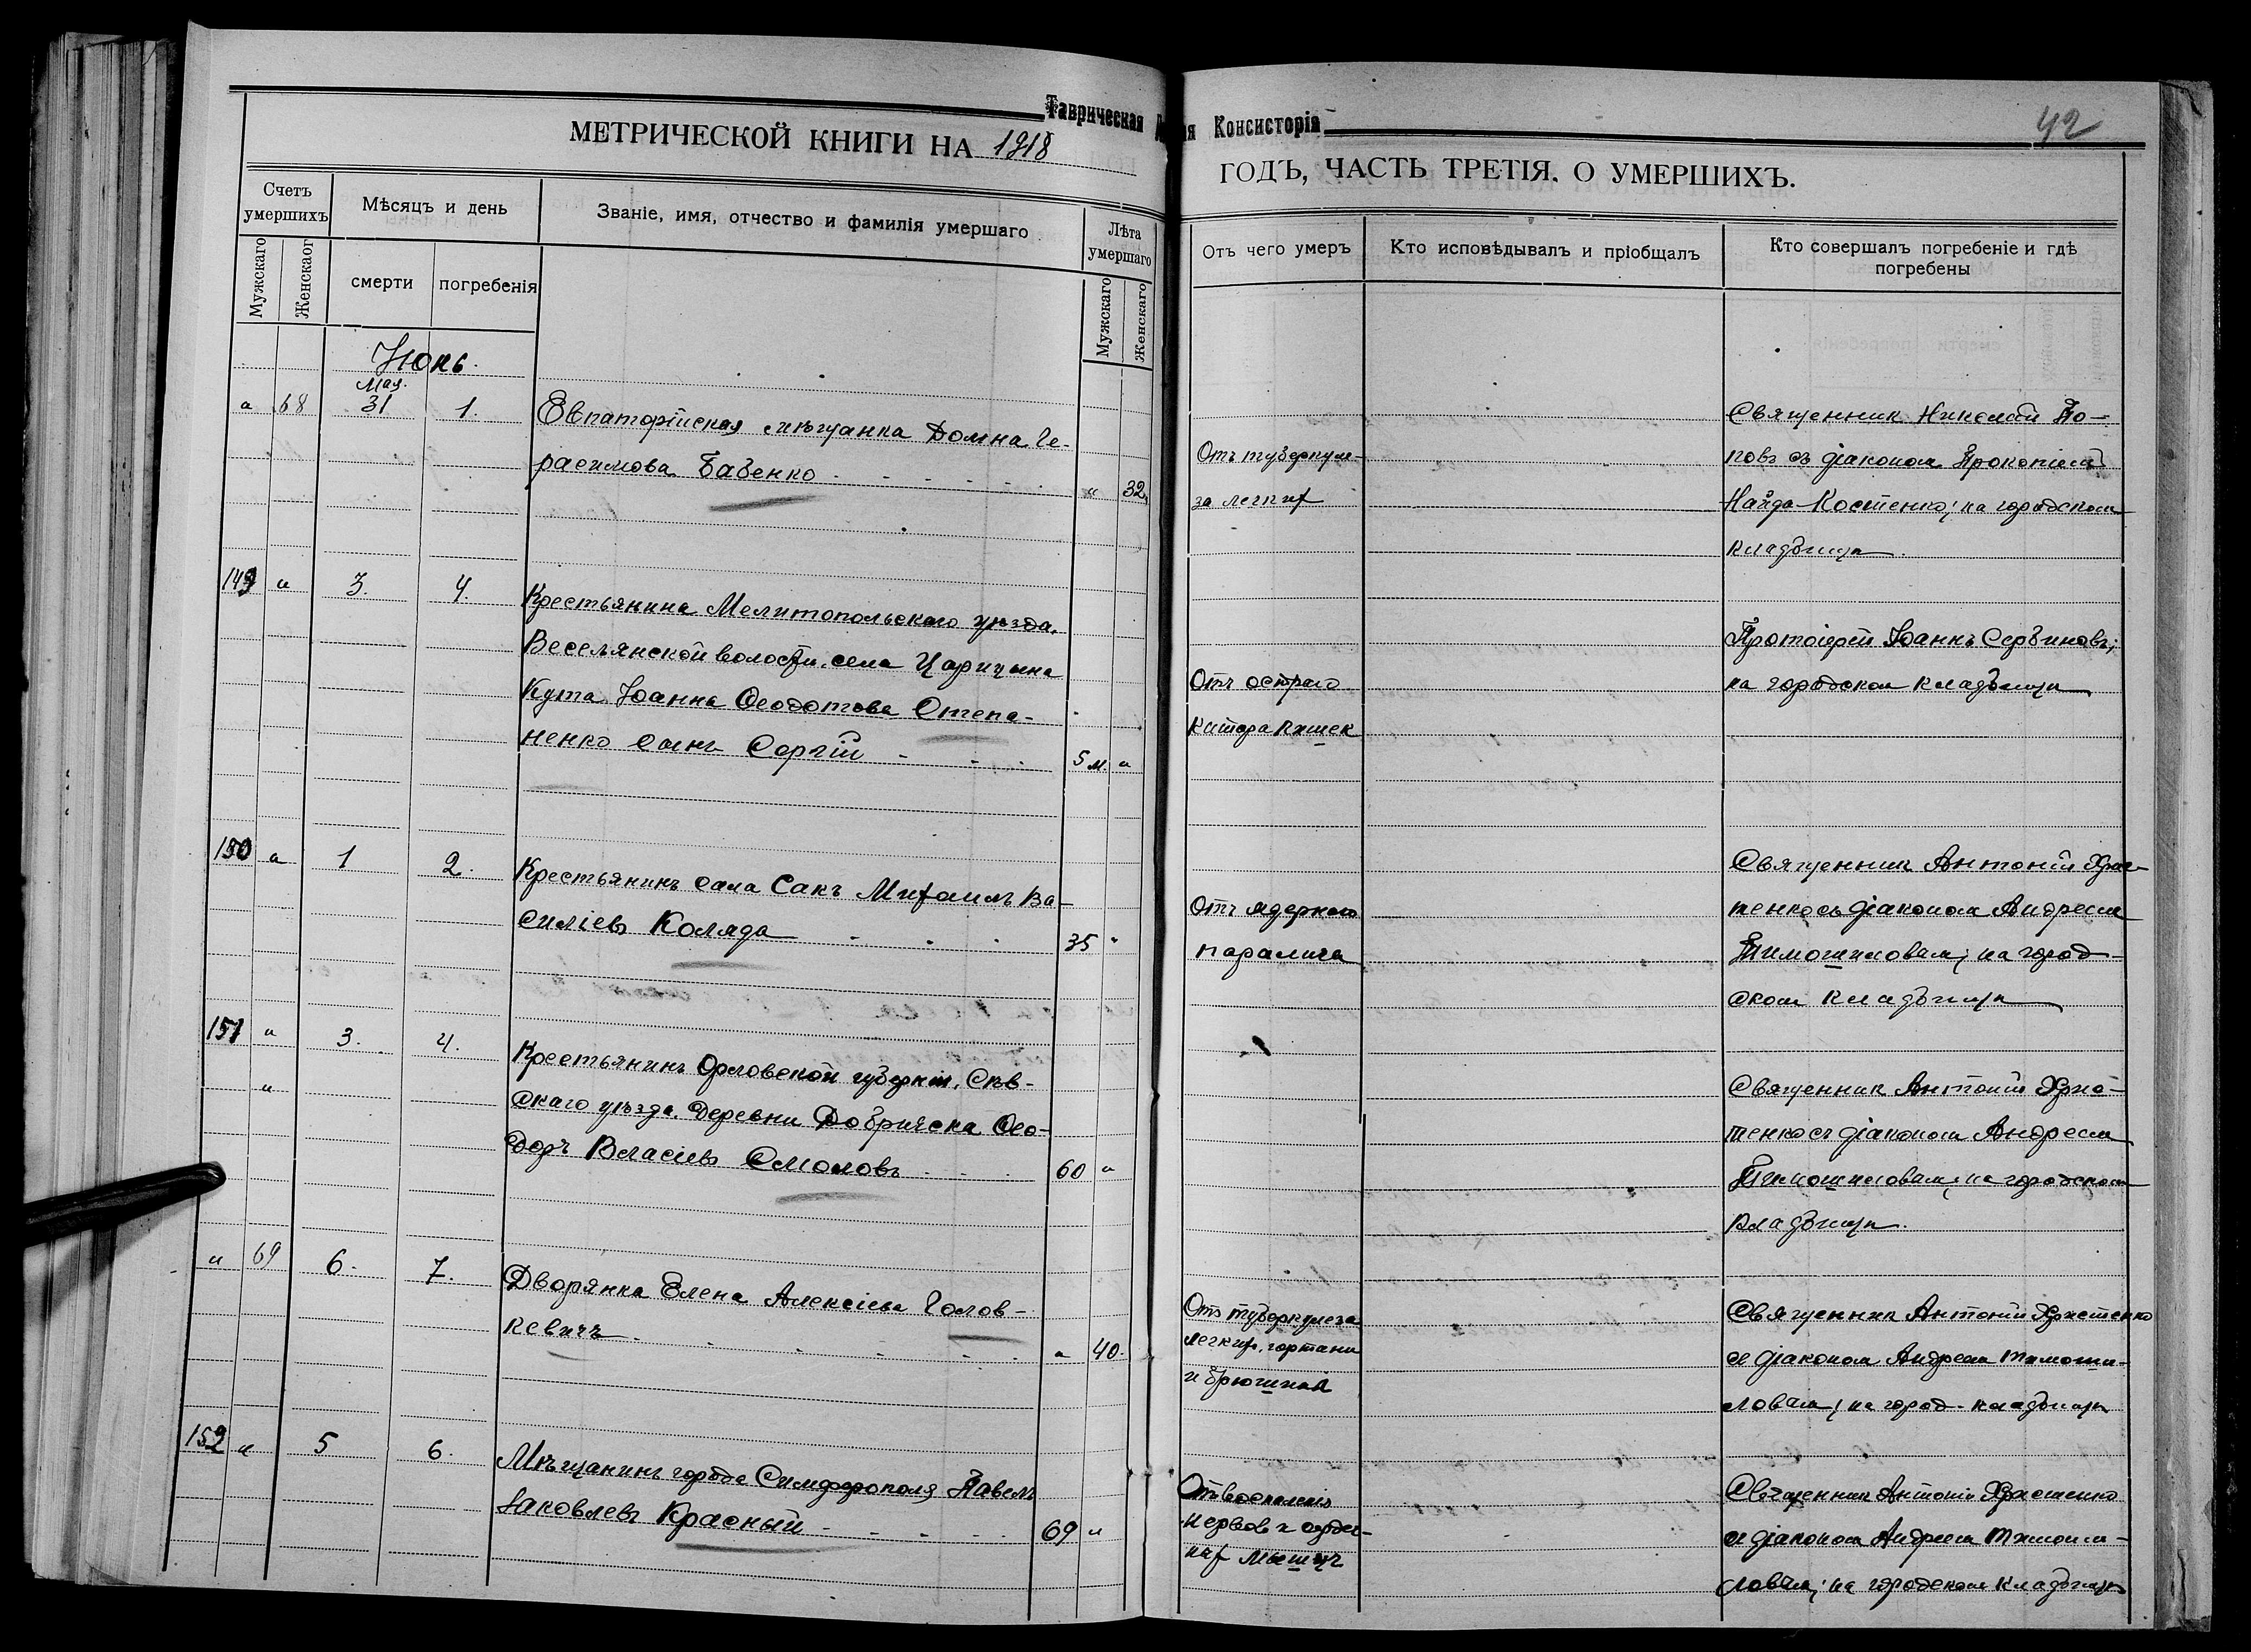 Таврическая
я Консисторія
42
МЕТРИЧЕСКОЙ КНИГИ НА 1918
ГОДЪ, ЧАСТЬ ТРЕТІЯ. О УМЕРШИХЪ.
Счетъ умершихъ
Мужскаго
Женскаго
Мѣсяцъ и день
смерти
погребенія
Званіе, имя, отчество и фамилія умершаго
Лѣта умершаго
Мужскаго
Женскаго
Отъ чего умеръ
Кто исповѣдывалъ и пріобщалъ
Кто совершалъ погребеніе и гдѣ
погребены
Июнь.
Мая.
" 68 31 1.
Евпаторійская мѣщанка Домна Ге-
расимова Бабенко
" 32
Отъ туберкуле-
за легких
Священник Николай По-
повъ съ діаконом Прокопіем
Найда-Костенко; на городском
кладбищѣ.
149 " 3. 4.
Крестьянина Мелитопольскаго уѣзда,
Веселянской волости, села Царицына
Кута Іоанна Ѳеодотова Степа-
ненко сынъ Сергій
5 м. "
Отъ остраго
катара кишек
Протоіерей Іоаннъ Сербиновъ;
на городском кладбищѣ
150 " 1 2.
Крестьянинъ села Сакъ Михаилъ Ва-
силіевъ Коляда
35 "
Отъ ядернаго
паралича
Священник Антоній Хрис-
тенко съ діаконом Андреем
Тимошиловым; на город-
ском кладбищѣ
151 " 3. 4.
"
Крестьянинъ Орловской губерніи, Сѣв-
скаго уѣзда, деревни Добричека Ѳео-
доръ Власіевъ Смоловъ
60 "
Священник Антоній Хрис-
тенко съ діаконом Андреем
Тимошиловым; на городском
кладбищѣ.
" 69 6. 7.
Дворянка Елена Алексіева Голов-
кевичъ
" 40.
Отъ туберкулеза
легких, гортани
и брюшины
Священник Антоній Христенко
съ діаконом Андреем Тимоши-
ловым; на город. кладбищѣ
152 " 5 6.
Мѣщанинъ города Симферополя Павелъ
Іаковлевъ Красный
69 "
Отъ воспаленія
нервов и сердеч-
ных мышцъ
Священник Антоній Христенко
съ діаконом Андреем Тимоши-
ловым; на городском кладбищѣ